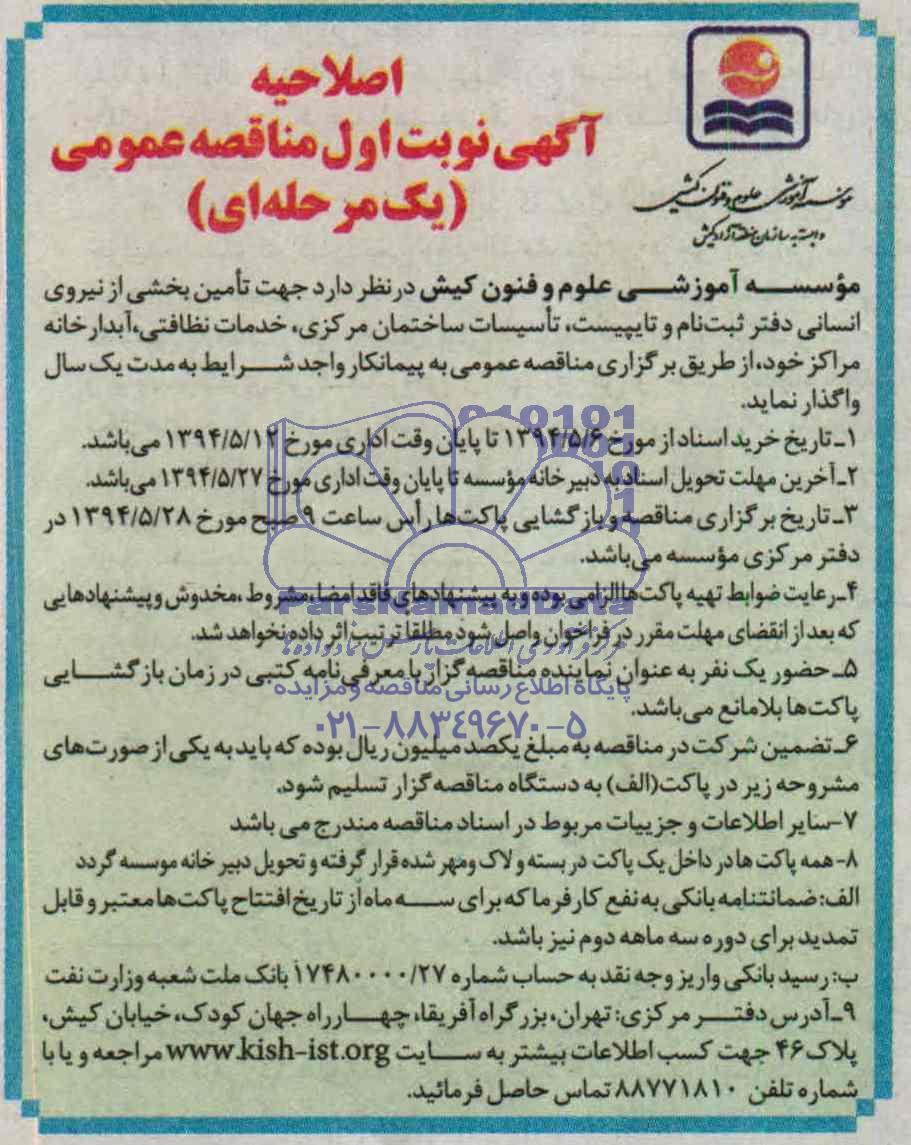 اصلاحیه
آگهی نوبت اول مناقصه عمومی
(یک مرحله‌ای)
مؤسسه آموزشی علوم و فنون کیش
وابسته به سازمان منطقه آزاد کیش
مؤسسه آموزشی علوم و فنون کیش درنظر دارد جهت تأمین بخشی از نیروی
انسانی دفتر ثبت‌نام و تایپیست، تأسیسات ساختمان مرکزی، خدمات نظافتی،آبدارخانه
مراکز خود،از طریق برگزاری مناقصه عمومی به پیمانکار واجد شرایط به مدت یک سال
واگذار نماید.
۱ـ تاریخ خرید اسناد از مورخ ۱۳۹۴/۵/۶ تا پایان وقت اداری مورخ ۱۳۹۴/۵/۱۲ می‌باشد.
۲ـ آخرین مهلت تحویل اسناد به دبیرخانه مؤسسه تا پایان وقت اداری مورخ ۱۳۹۴/۵/۲۷ می‌باشد.
۳ـ تاریخ برگزاری مناقصه و بازگشایی پاکت‌ها رأس ساعت ۹ صبح مورخ ۱۳۹۴/۵/۲۸ در
دفتر مرکزی مؤسسه می‌باشد.
۴ـ رعایت ضوابط تهیه پاکت‌ها الزامی بوده و به پیشنهادهای فاقد امضا،مشروط ،مخدوش و پیشنهادهایی
که بعد از انقضای مهلت مقرر در فراخوان واصل شود مطلقا ترتیب اثر داده نخواهد شد.
۵ـ حضور یک نفر به عنوان نماینده مناقصه‌گزار با معرفی‌نامه کتبی در زمان بازگشایی
پاکت‌ها بلامانع می‌باشد.
۶ـ تضمین شرکت در مناقصه به مبلغ یکصد میلیون ریال بوده که باید به یکی از صورت‌های
مشروحه زیر در پاکت(الف) به دستگاه مناقصه گزار تسلیم شود.
۷-سایر اطلاعات و جزییات مربوط در اسناد مناقصه مندرج می باشد
۸- همه پاکت ها در داخل یک پاکت در بسته و لاک ومهر شده قرار گرفته و تحویل دبیرخانه موسسه گردد
الف: ضمانتنامه بانکی به نفع کارفرما که برای سه ماه از تاریخ افتتاح پاکت‌ها معتبر و قابل
تمدید برای دوره سه ماهه دوم نیز باشد.
ب: رسید بانکی واریز وجه نقد به حساب شماره ۱۷۴۸۰۰۰۰/۲۷ بانک ملت شعبه وزارت نفت
۹ـ آدرس دفتر مرکزی: تهران، بزرگراه آفریقا، چهارراه جهان کودک، خیابان کیش،
پلاک ۴۶ جهت کسب اطلاعات بیشتر به سایت www.kish-ist.org مراجعه و یا با
شماره تلفن ۸۸۷۷۱۸۱۰ تماس حاصل فرمائید.
ParsNamadData
پایگاه اطلاع رسانی مناقصه و مزایده
۰۲۱-۸۸۳۴۹۶۷۰-۵